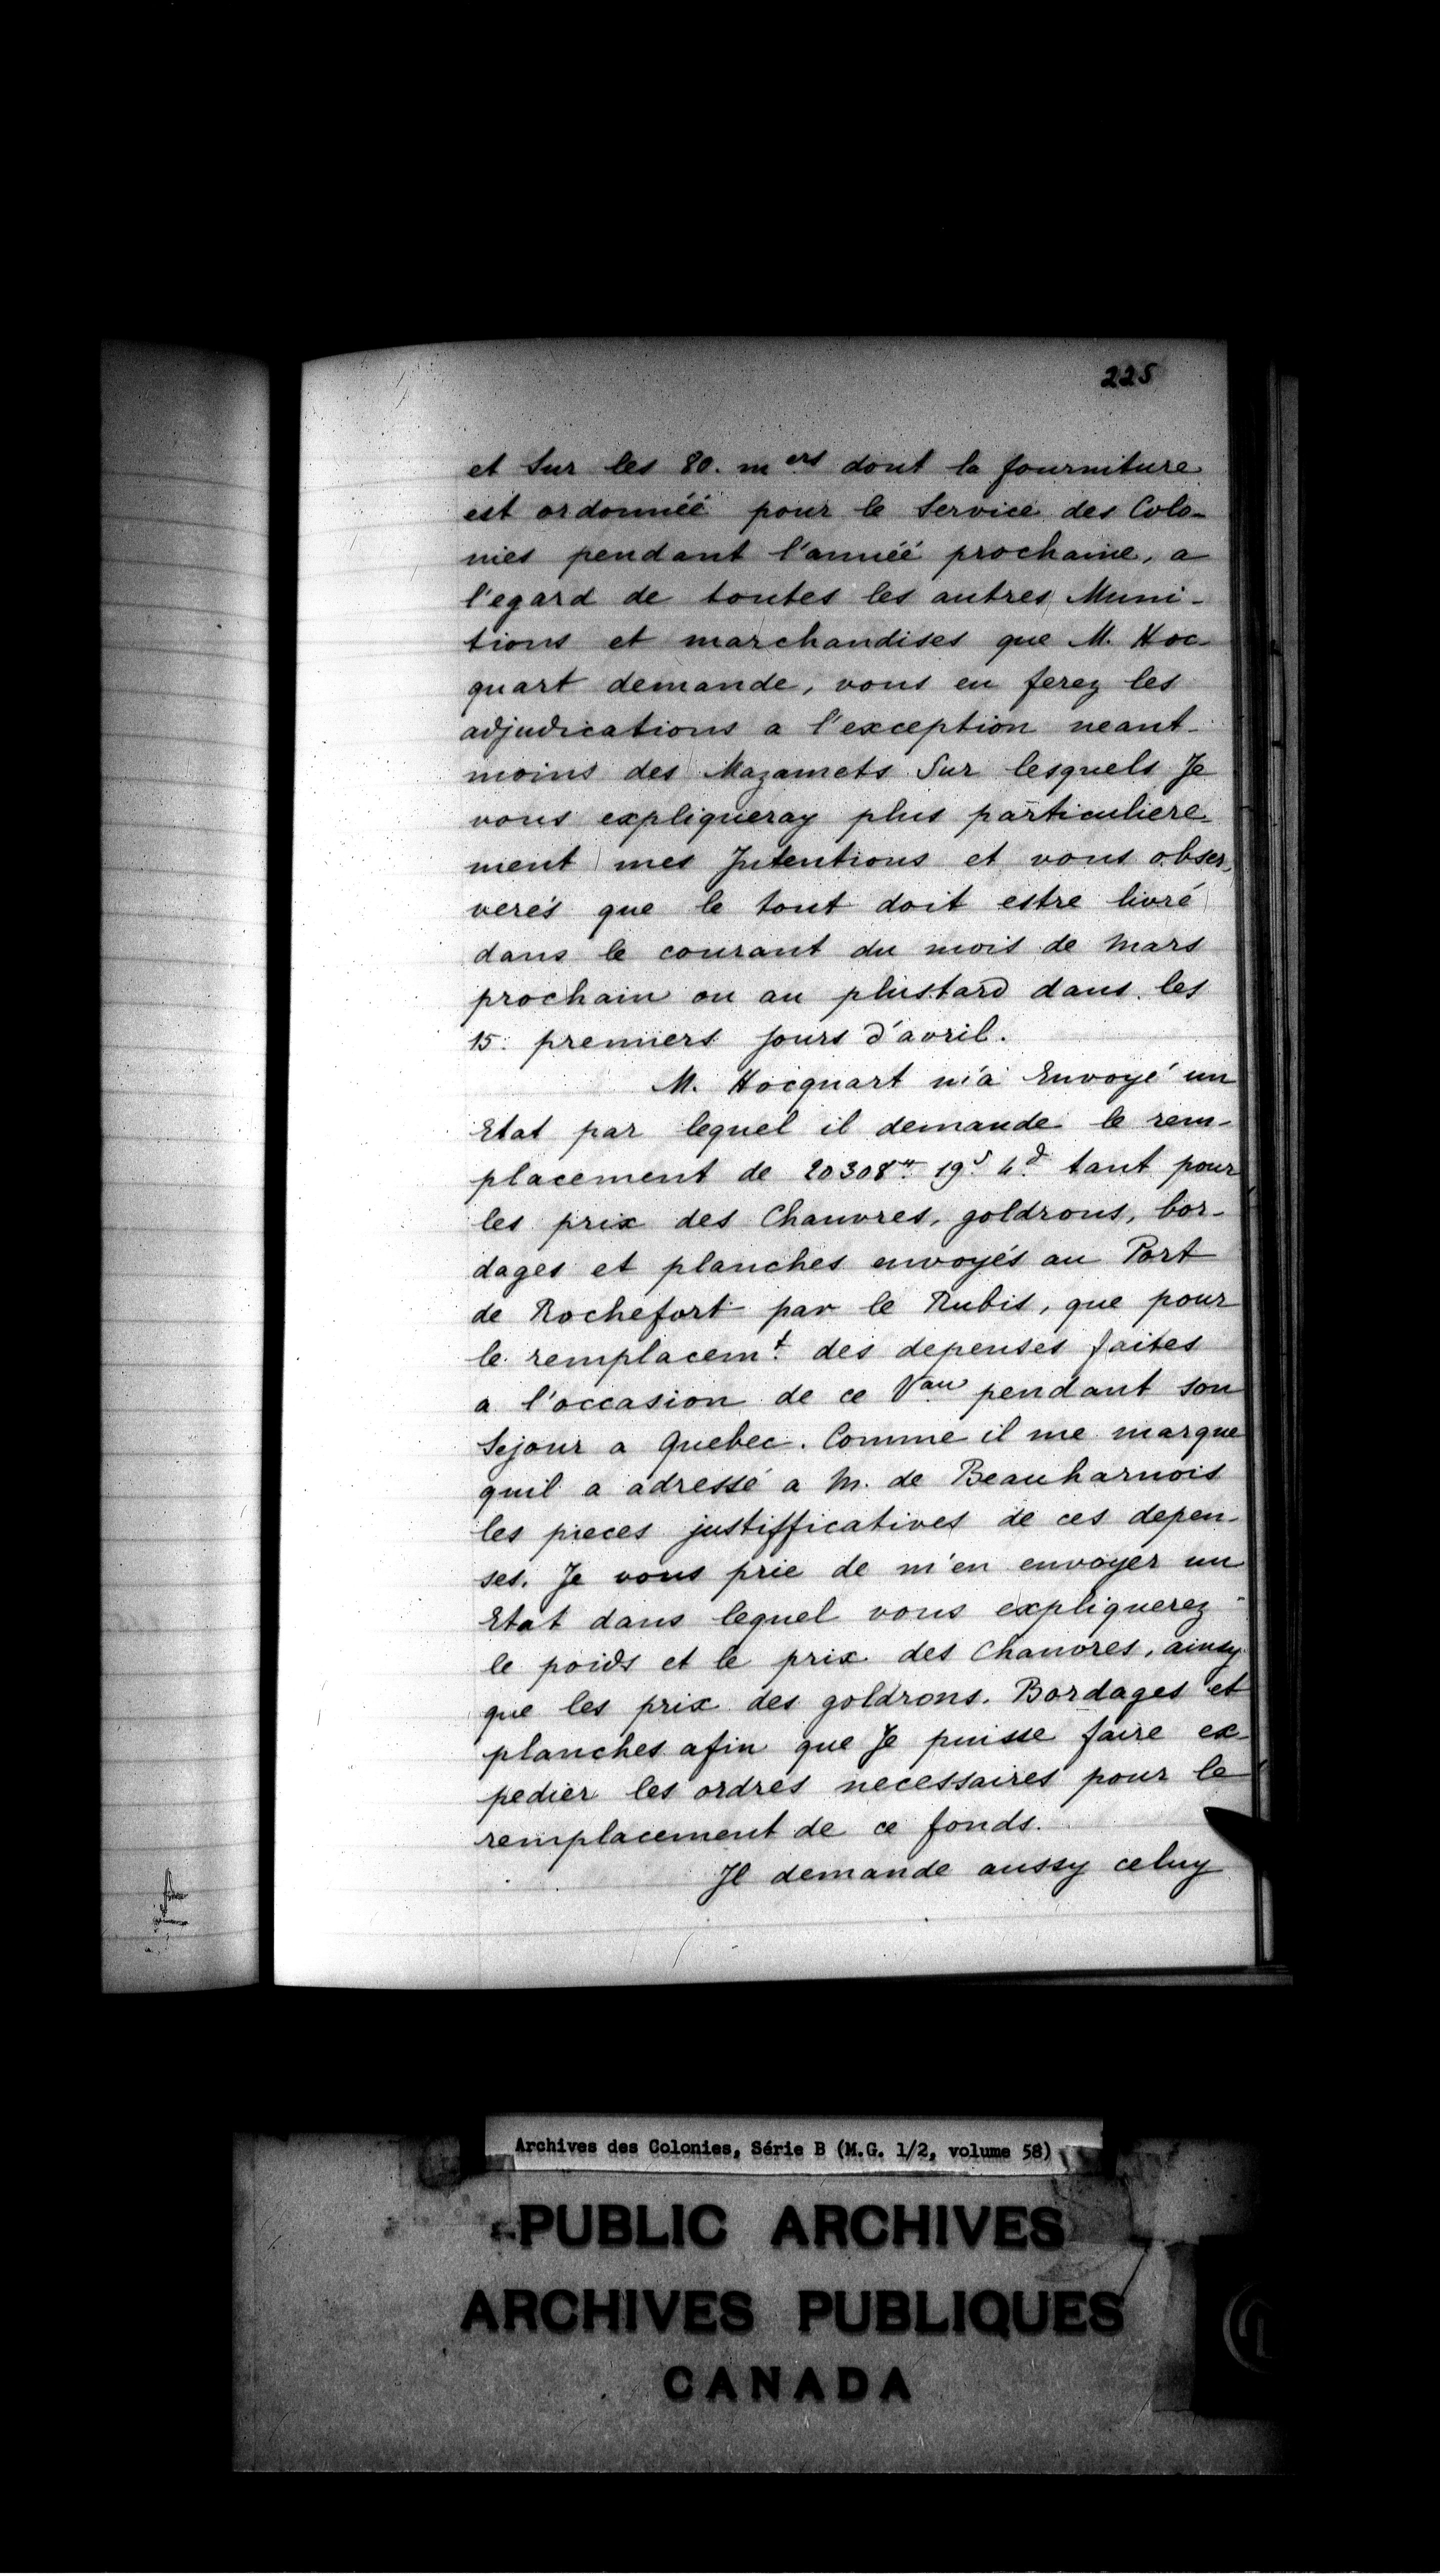 225
et Sur les 80. m ers dont la fourniture
est ordonnéé pour le Service des Colo-
nies pendant l'annéé prochaine, a
l'egard de toutes les autres Muni-
tions et marchandises que M. Hoc-
quart demande, vous en ferez les
adjudications a l'exception neant-
moins des Mazamets Sur lesquels Je
vous expliqueray plus particuliere-
ment mes Intentions et vous obser-
verés que le tout doit estre livré
dans le courant du mois de Mars
prochain ou au plustard dans les
15. premiers jours d'avril.
M. Hocquart m'a Envoyé un
Etat par lequel il demande le rem-
placement de 20308tt. 19s. 4d. tant pour
les prix des Chanvres, goldrons, bor-
dages et planches envoyés au Port
de Rochefort par le Rubis, que pour
le remplacemt. des depenses faites
a l'occasion de ce Vau pendant son
Sejour a Quebec. Comme il me marque
quil a adressé a M. de Beauharnois
les pieces justifficatives de ces depen-
ses. Je vous prie de m'en envoyer un
Etat dans lequel vous expliquerez
le poids et le prix des Chanvres, ainsy
que les prix des goldrons. Bordages et
planches afin que Je puisse faire ex-
pedier les ordres necessaires pour le
remplacement de ce fonds.
Il demande aussy celuy
Archives des Colonies, Série B (M.G. 1/2, volume 58)
PUBLIC ARCHIVES
ARCHIVES PUBLIQUES
CANADA